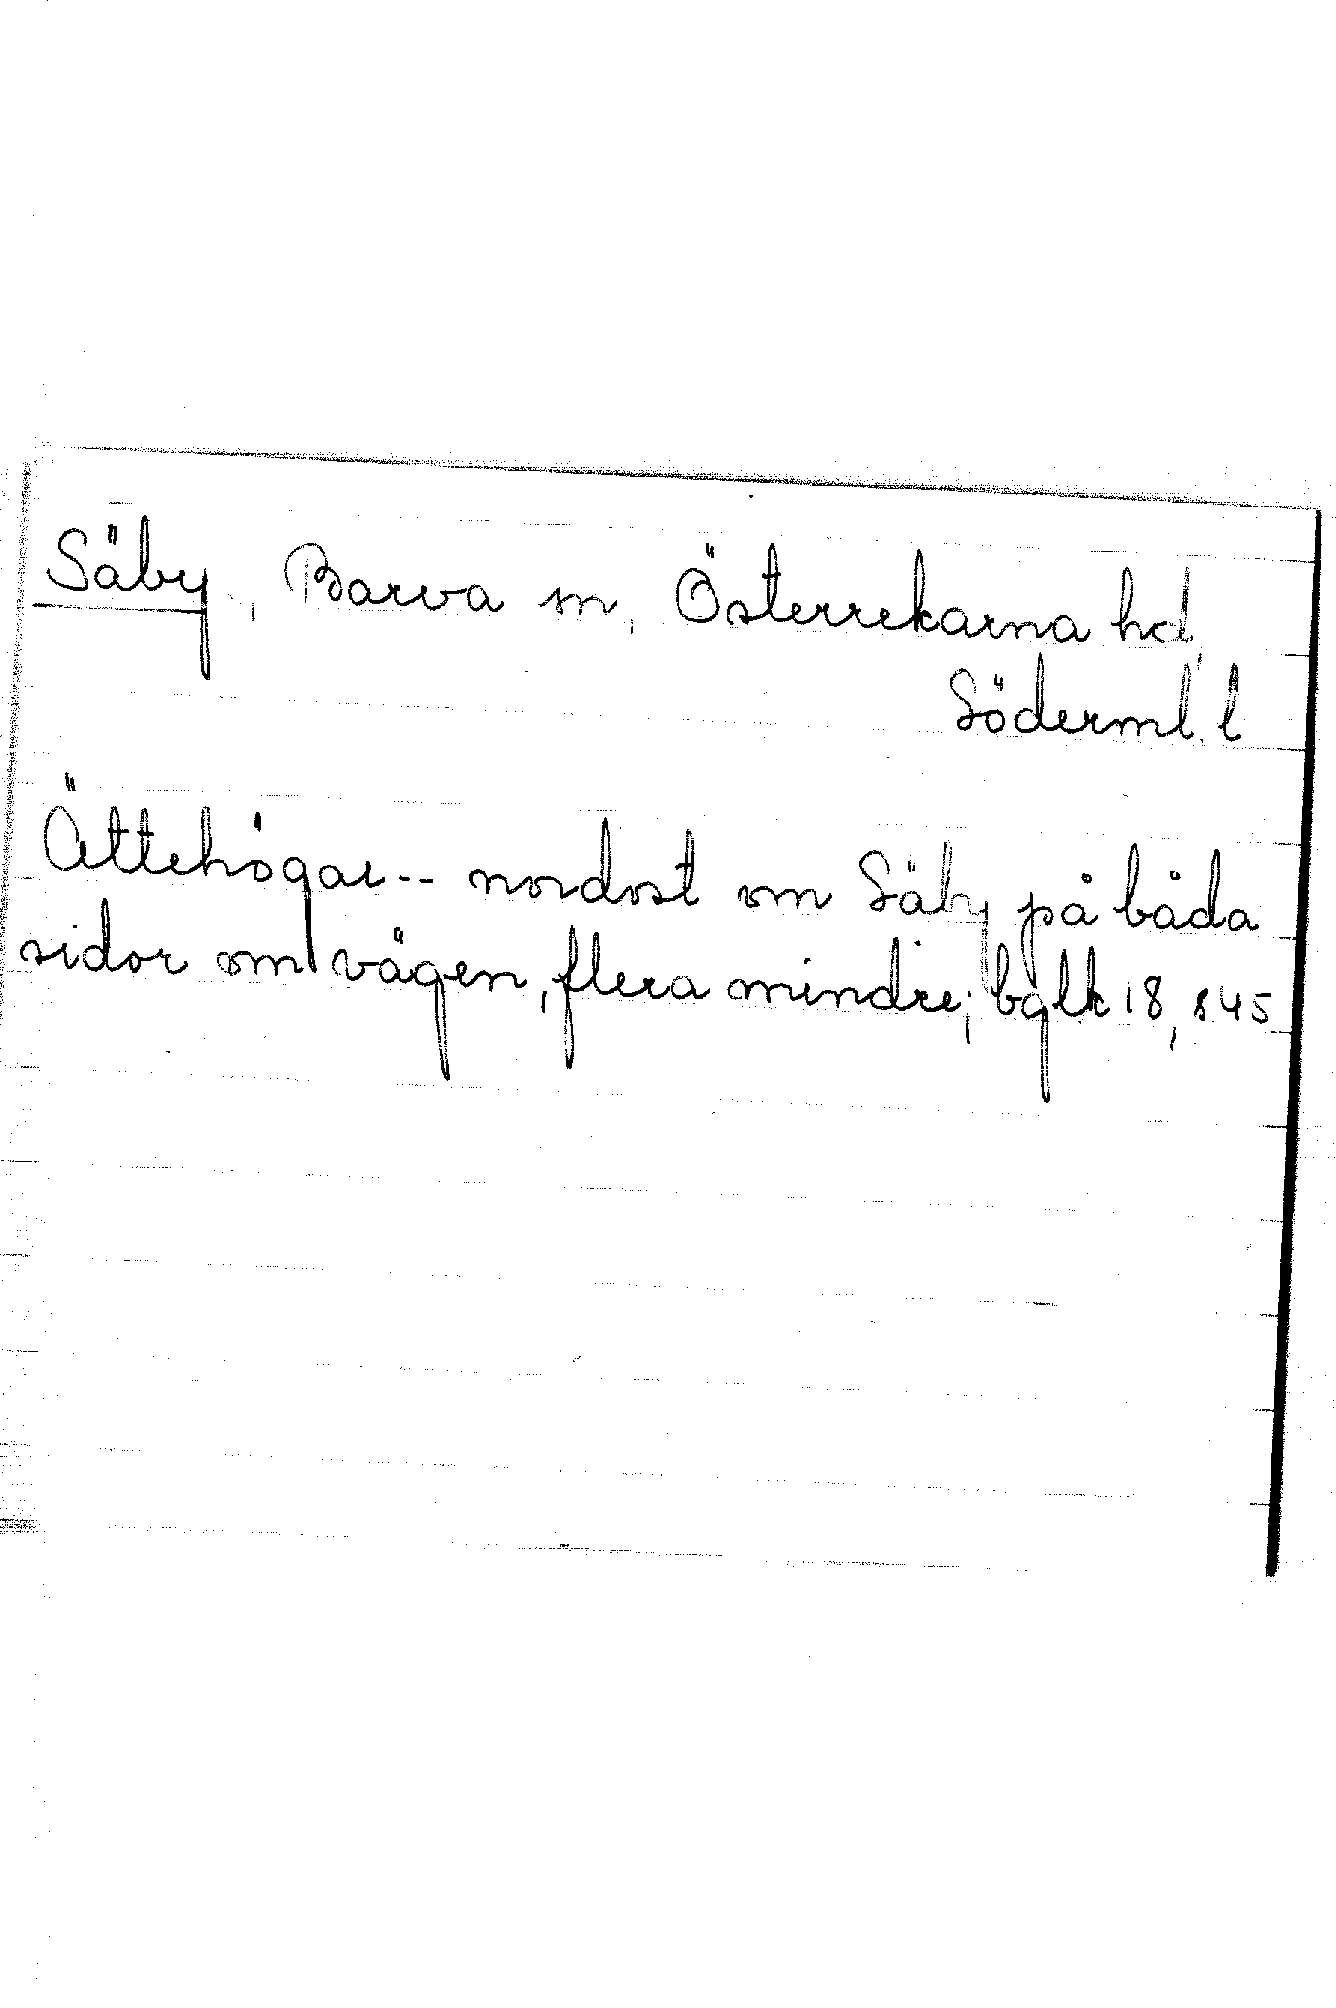 Säby, Barva sn, Österrekarna hd,
Söderml. l
Ättehögar -- nordost om Säby på båda
sidor om vägen, flera mindre; bglk 18, s 45